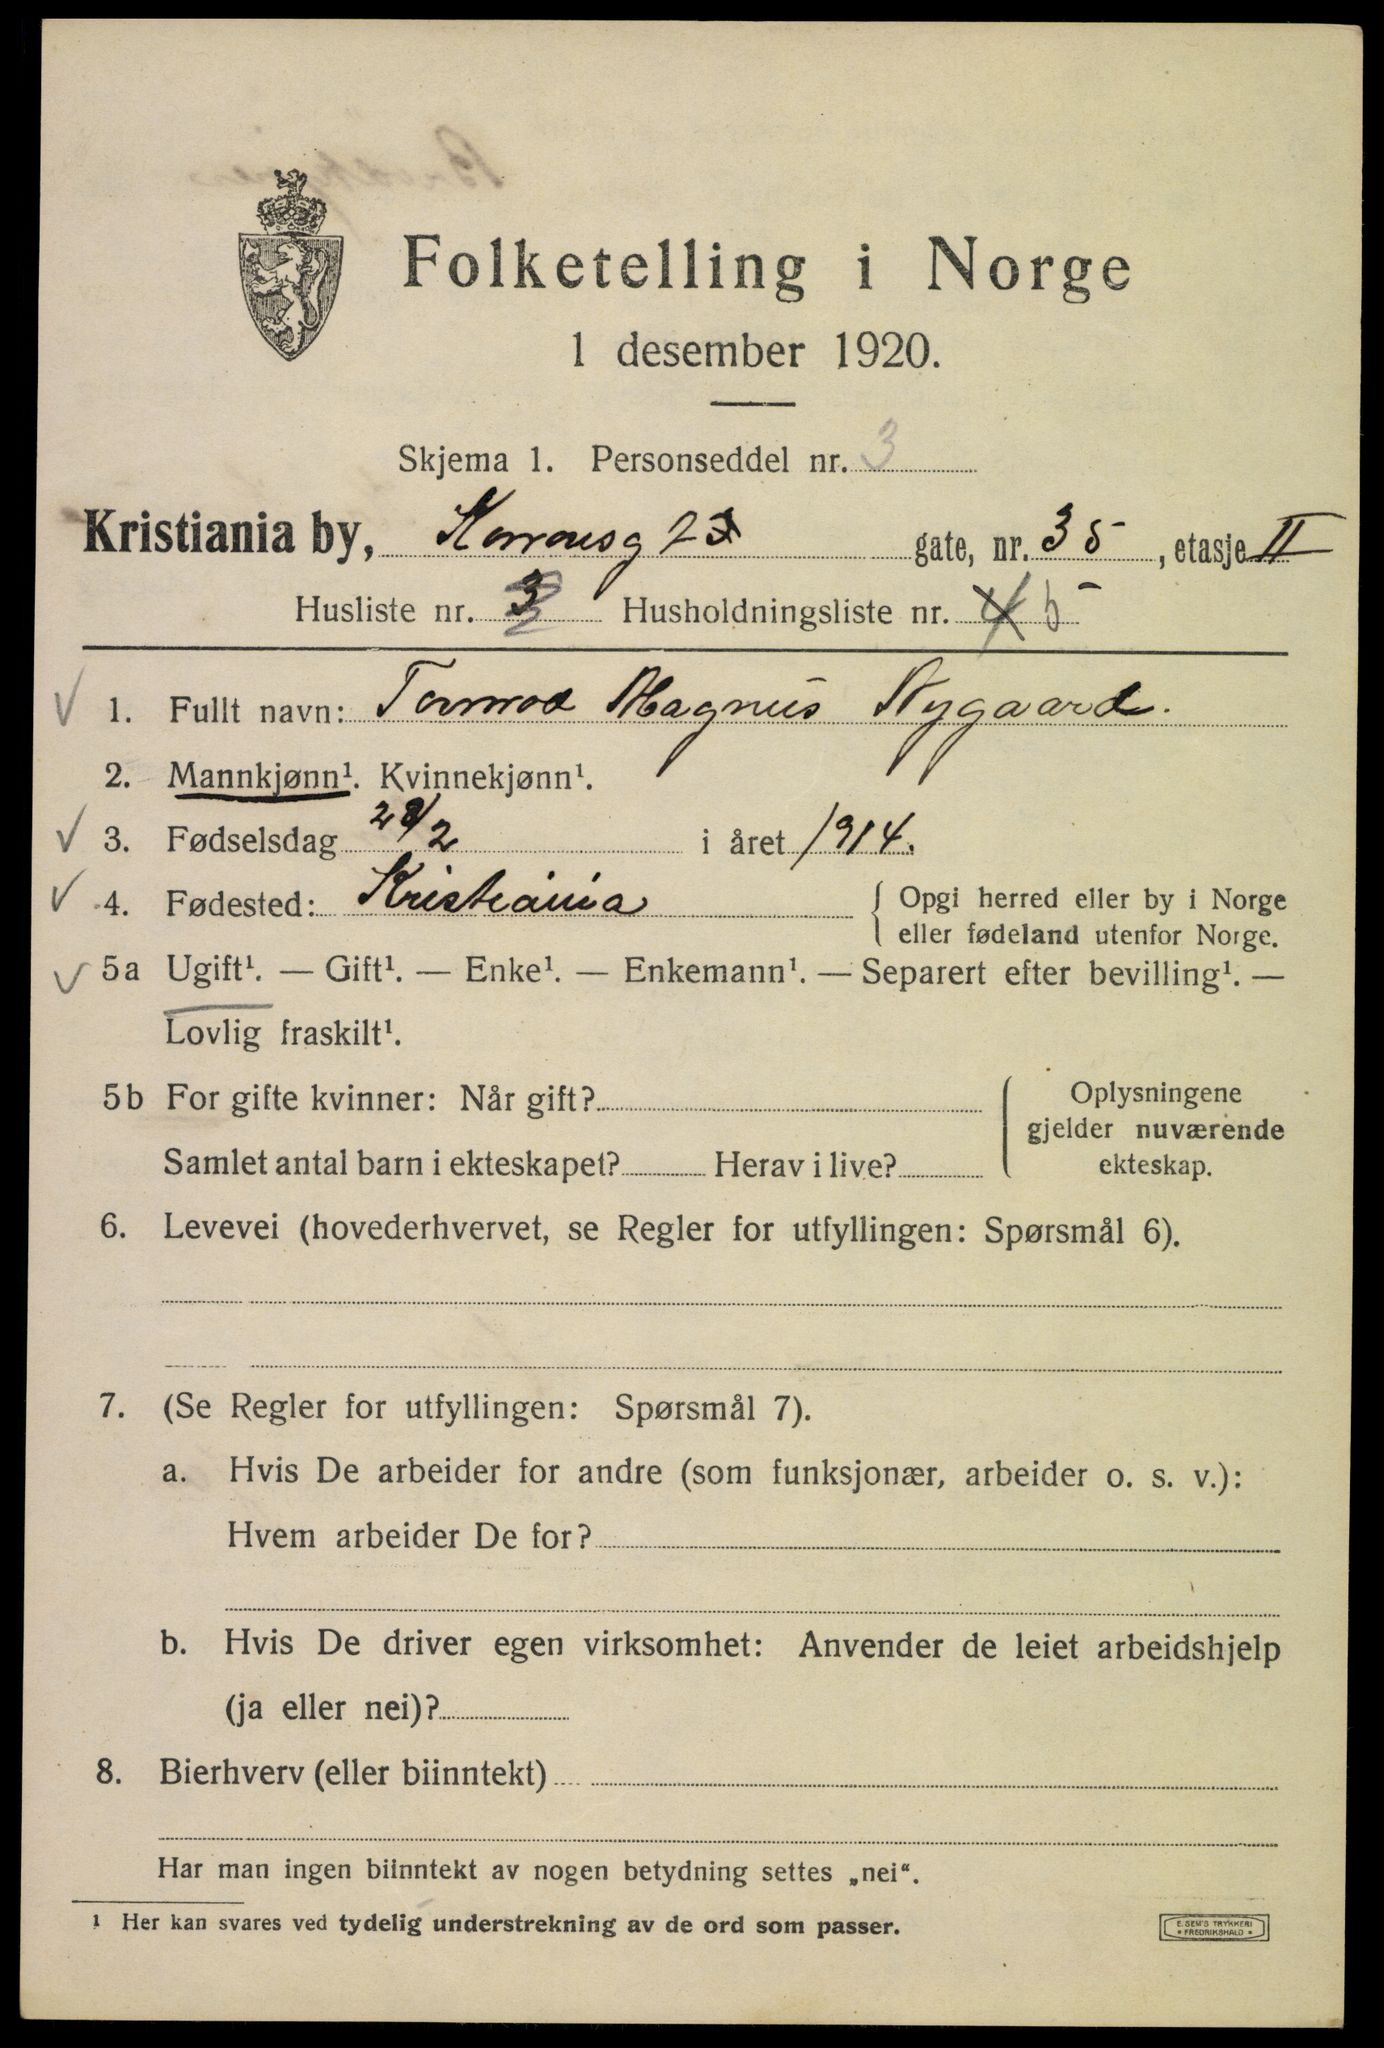 Folketelling i Norge
1 desember 1920.
Skjema 1. Personseddel nr. 3
Kristiania by, gate, nr. 35, etasje II
Husliste nr. 3 Husholdningsliste nr. 4 5
1. Fullt navn: Tormod Magnus Nygaard.
2. Mannkjønn¹. Kvinnekjønn¹.
3. Fødselsdag 28/2 i året 1914.
4. Fødested: Kristiania { Opgi herred eller by i Norge
eller fødeland utenfor Norge.
5a Ugift¹. — Gift¹. — Enke¹. — Enkemann¹. — Separert efter bevilling¹. —
Lovlig fraskilt¹.
5b For gifte kvinner: Når gift?
Samlet antal barn i ekteskapet? Herav i live?
{ Oplysningene
gjelder nuværende
ekteskap.
6. Levevei (hovederhvervet, se Regler for utfyllingen: Spørsmål 6).
7. (Se Regler for utfyllingen: Spørsmål 7).
a. Hvis De arbeider for andre (som funksjonær, arbeider o. s. v.):
Hvem arbeider De for?
b. Hvis De driver egen virksomhet: Anvender de leiet arbeidshjelp
(ja eller nei)?
8. Bierhverv (eller biinntekt)
Har man ingen biinntekt av nogen betydning settes „nei“.
¹ Her kan svares ved tydelig understrekning av de ord som passer.
E. SEM'S TRYKKERI
• FREDRIKSHALD •